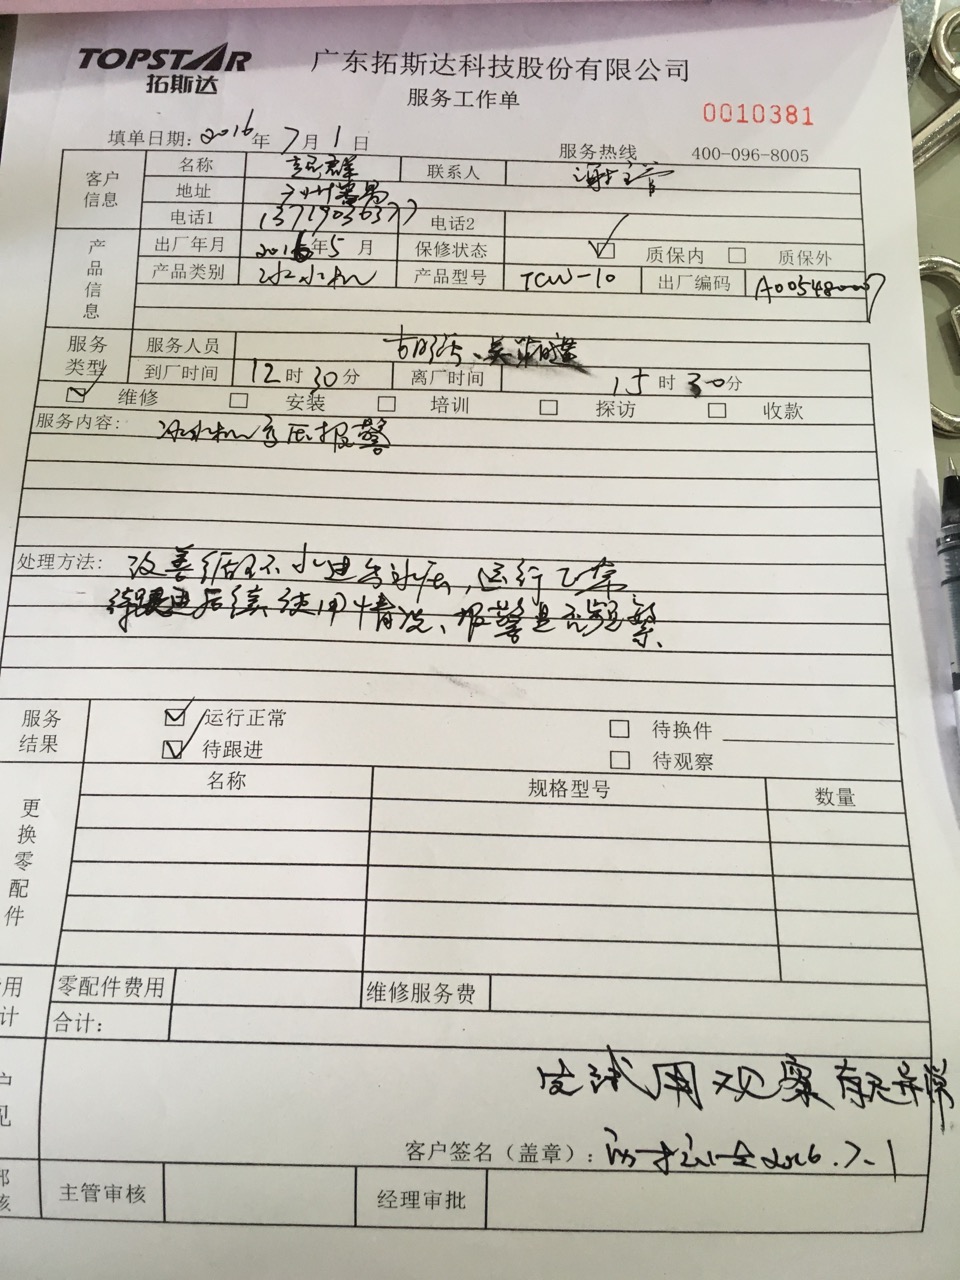 TOPSTAR
拓斯达
广东拓斯达科技股份有限公司
服务工作单
0010381
填单日期: 2016年7月1日
服务热线 400-096-8005
客户信息
名称
联系人
地址 广州番禺
电话1 13719036377 电话2
产品信息
出厂年月 2016年5月 保修状态 质保内 质保外
产品类别 冰水机 产品型号 TCW-10 出厂编码 A00548
服务类型
服务人员
到厂时间 12时30分 离厂时间 15时30分
维修 安装 培训 探访 收款
服务内容: 冰水机高压报警
处理方法: 改善循环水进出水压,运行正常
待跟进后续使用情况、报警是否频繁、
服务结果
运行正常 待换件
待跟进 待观察
更换零配件
名称 规格型号 数量
用计
零配件费用 维修服务费
合计:
试用观察有无异常
客户签名(盖章): 2016.7.1
主管审核 经理审批